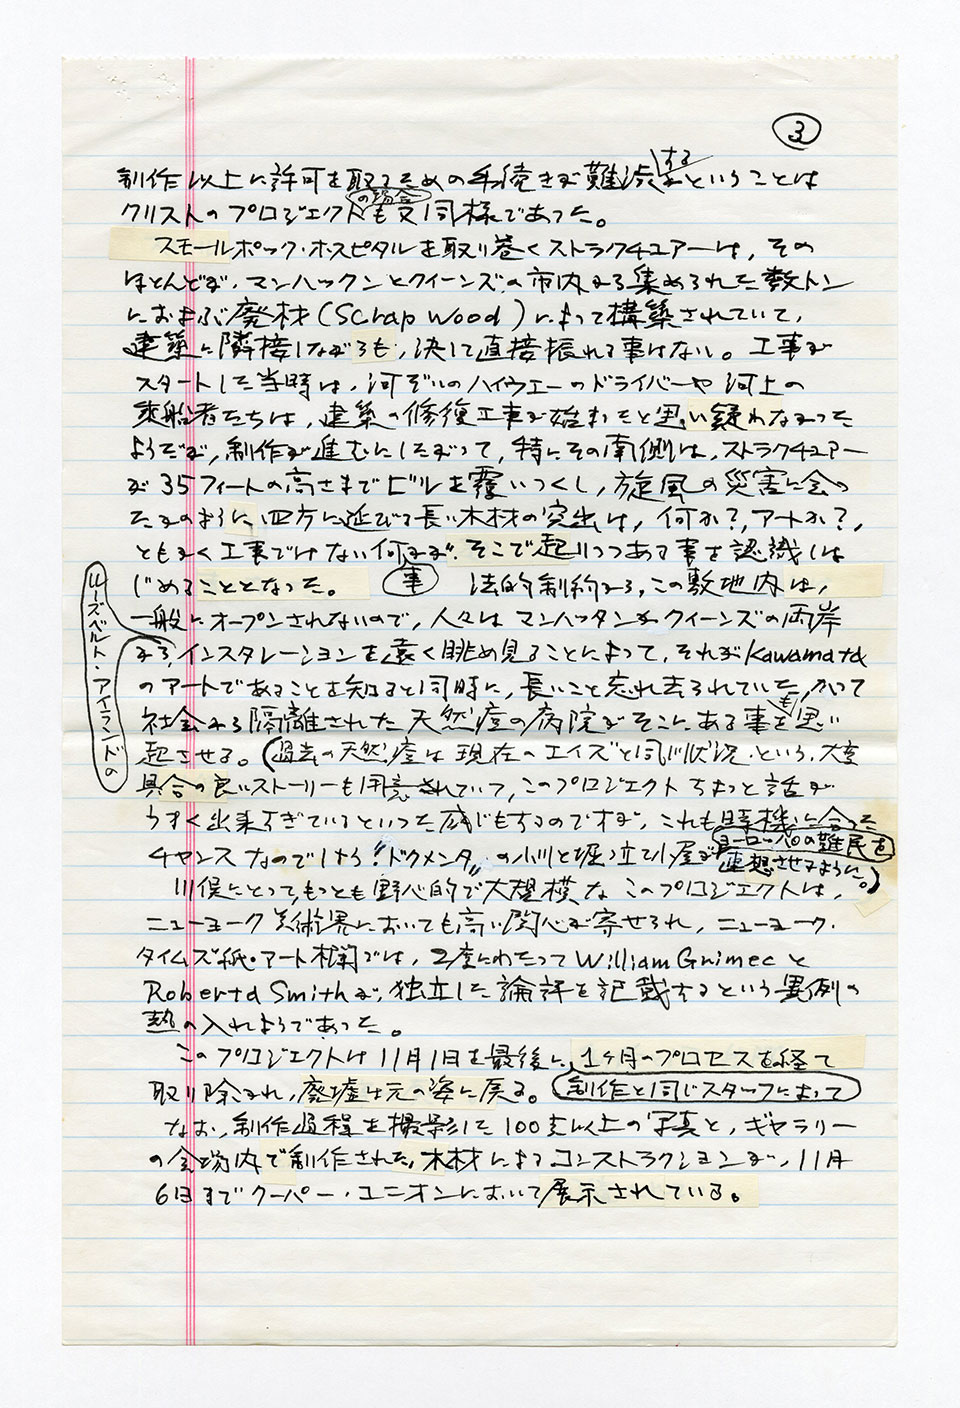 3
制作以上に許可を取るための手続きが難渋するということは
クリストのプロジェクトの場合も又同様であった。
スモールポック・ホスピタルを取り巻くストラクチュアーは、その
ほとんどが、マンハッタンとクイーンズの市内から集められた数トン
におよぶ廃材(Scrap wood)によって構築されていて、
建築に隣接しながらも、決して直接振れる事はない。工事が
スタートした当時は、河ぞいのハイウェーのドライバーや河上の
乗船者たちは、建築の修復工事が始まったと思い疑わなかった
ようだが、制作が進むにしたがって、特にその南側は、ストラクチュアー
が35フィートの高さまでビルを覆いつくし、旋風の災害に会っ
たかのように四方に延びる長い木材の突出は、何か?、アートか?、
ともかく工事ではない何かが、そこで起りつつある事を認識しは
じめることとなった。 事 法的制約から、この敷地内は、
一般にオープンされないので、人々はマンハッタンかクイーンズの両岸
から、インスタレーションを遠く眺め見ることによって、それがKawamata
のアートであることを知ると同時に、長いこと忘れ去られていた、かつて
ルーズベルト・アイランドの
社会から隔離された天然痘の病院がそこにある事をも思い
起させる。(過去の天然痘は現在のエイズと同じ状況、という、大変
具合の良いストーリーも用意されていて、このプロジェクトちょっと話が
うまく出来すぎているといった感じもするのですが、これも時機に合った
チャンスなのでしょう“ドクメンタ”の小川と堀っ立て小屋がヨーロッパの難民を
連想させるように。)
川俣にとって、もっとも野心的で大規模なこのプロジェクトは、
ニューヨーク美術界においても高い関心が寄せられ、ニューヨーク・
タイムズ紙・アート欄では、2度にわたってWilliam Grimecと
Roberta Smithが、独立した論評を記載するという異例の
熱の入れようであった。
このプロジェクトは11月1日を最後に、1ヶ月のプロセスを経て
取り除かれ、廃墟は元の姿に戻る。制作と同じスタッフによって
なお、制作過程を撮影した100支以上の写真と、ギャラリー
の会場内で制作された、木材によるコンストラクションが、11月
6日までクーパー・ユニオンにおいて展示されている。